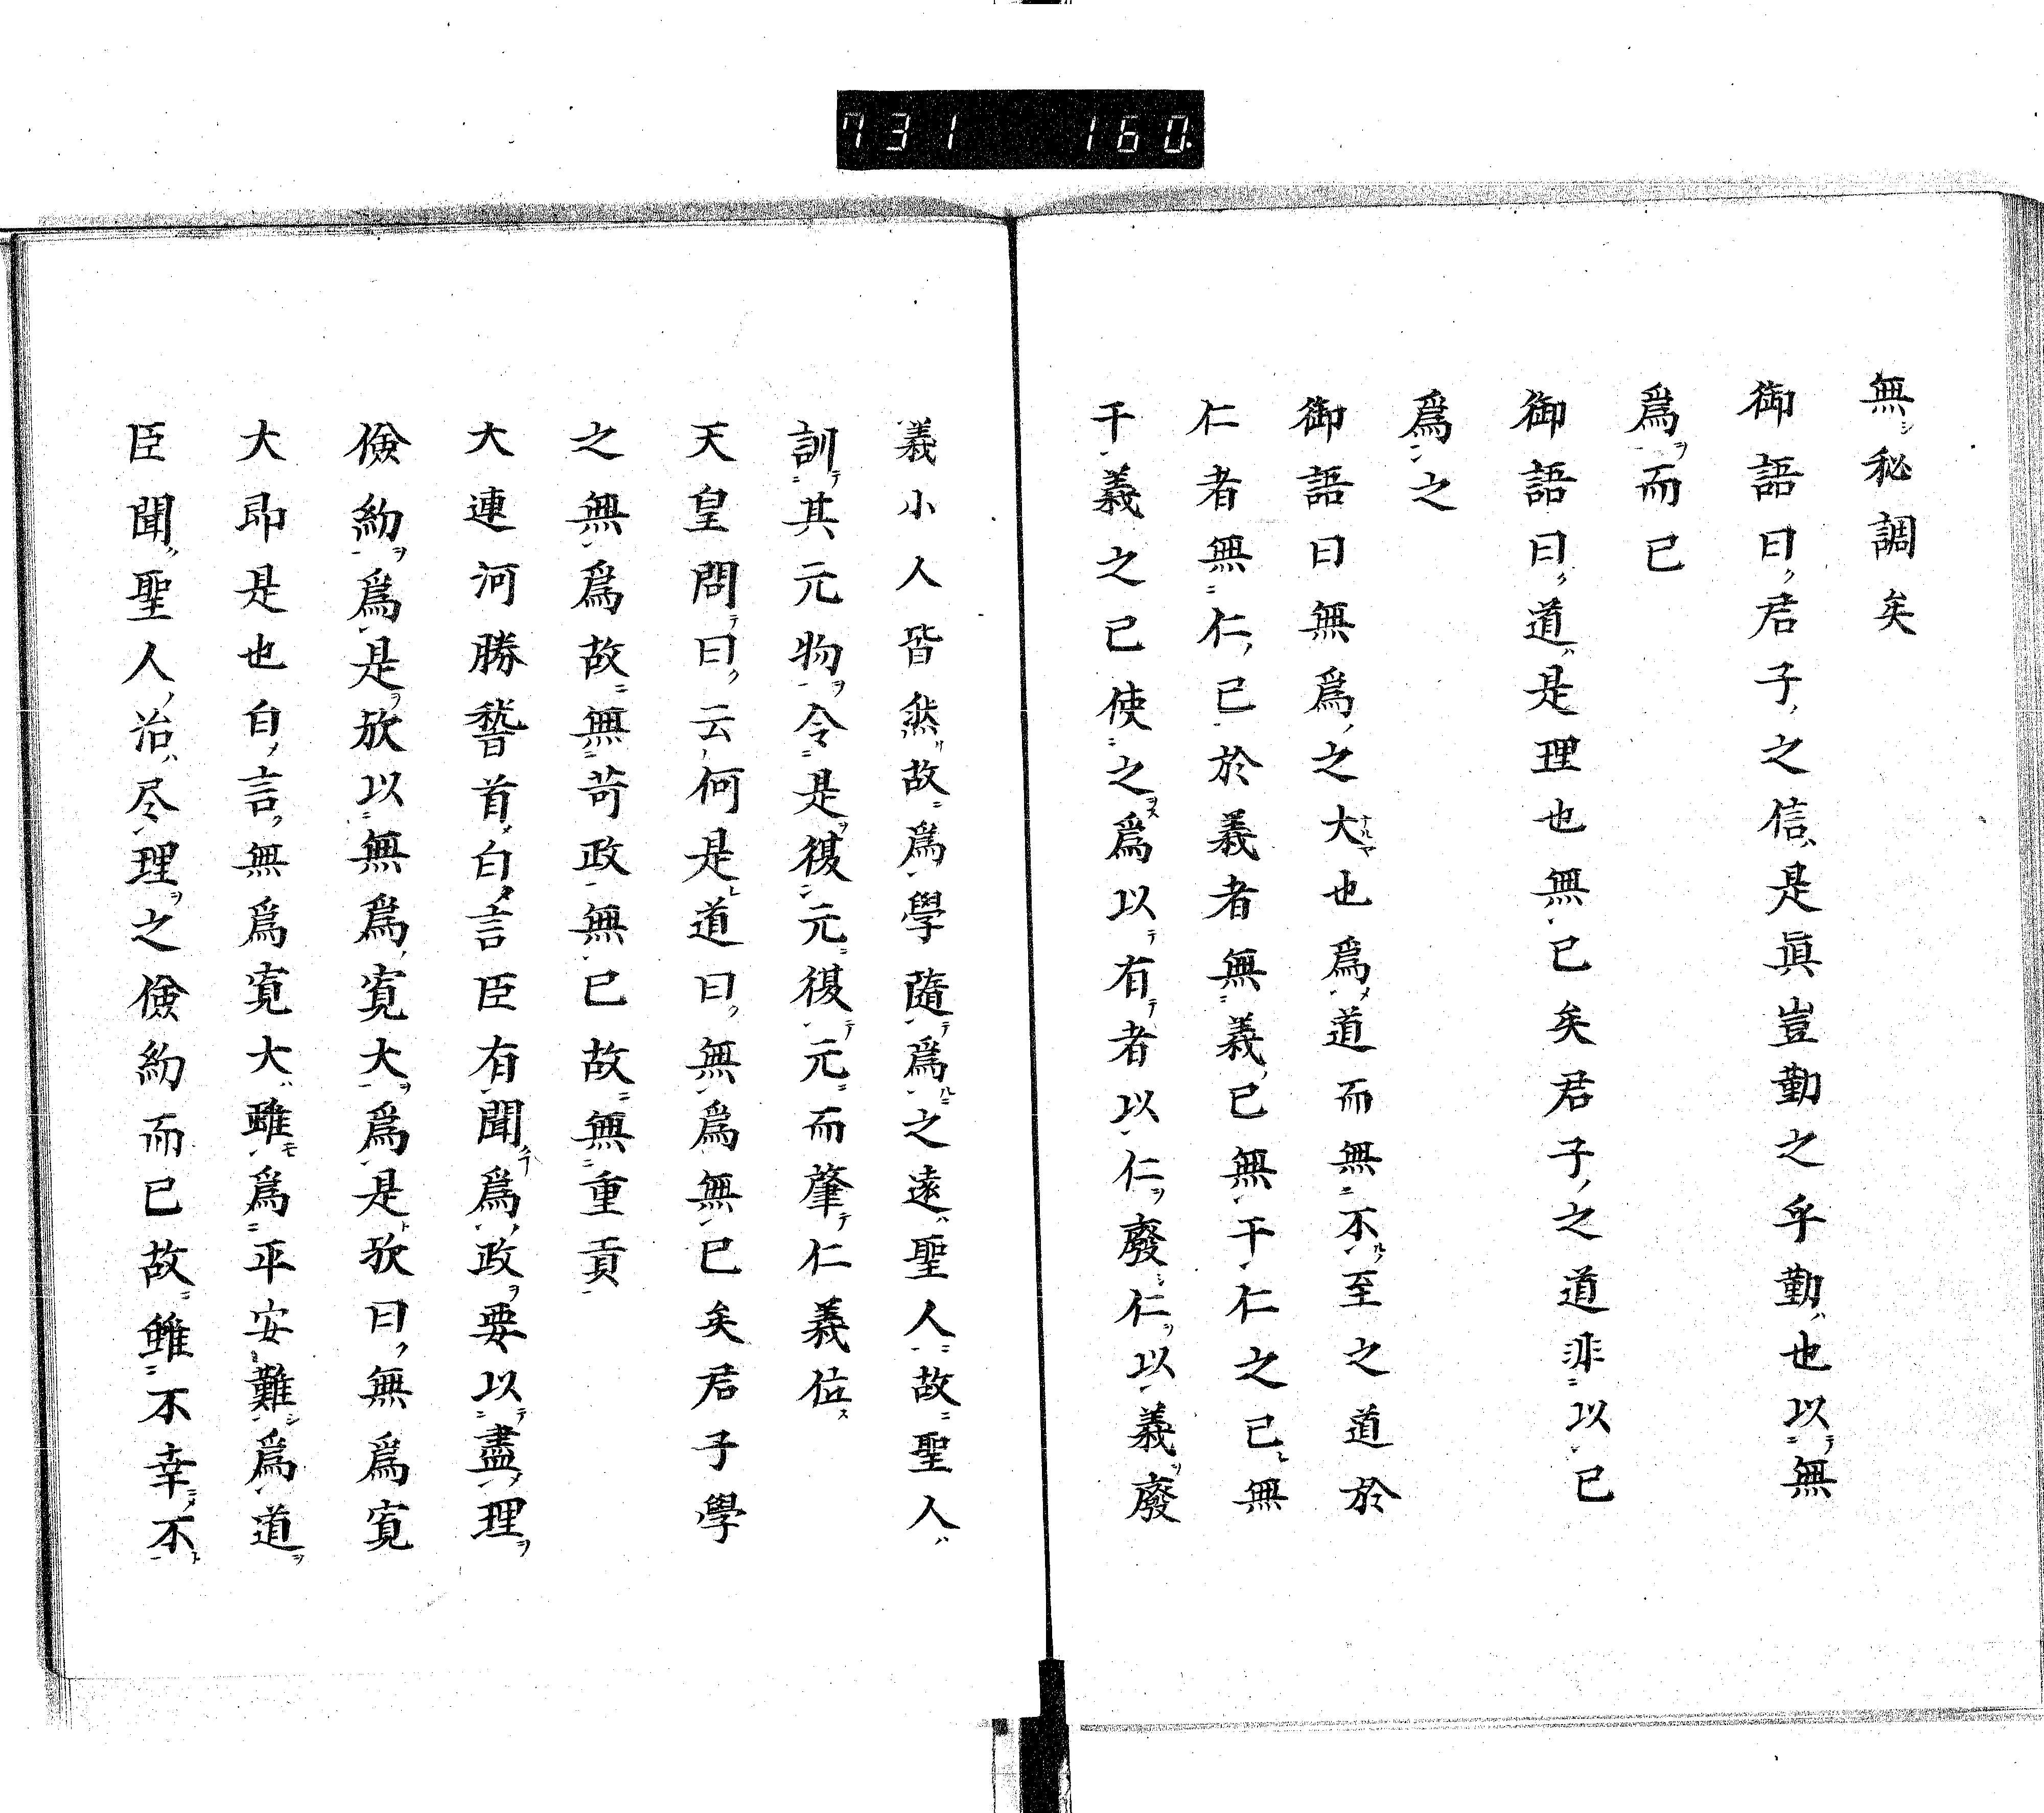 731 160.
無秘調矣
御語曰君子之信是眞豈勤之乎勤也以無
爲而已
御語曰道是理也無已矣君子之道非以已
爲之
御語曰無爲之大也爲道而無不至之道於
仁者無仁已於義者無義已無干仁之已無
干義之已使之爲以有者以仁廢仁以義廢
義小人皆然故爲學隨爲之遠聖人故聖人
訓其元物令是復元復元而肇仁義位
天皇問曰云何是道曰無爲無已矣君子學
之無爲故無苛政無已故無重貢
大連河勝稽首白言臣有聞爲政要以盡理
儉約爲是欤以無爲寛大爲是欤曰無爲寛
大即是也白言無爲寛大雖爲平安難爲道
臣聞聖人治尽理之儉約而已故雖不幸不